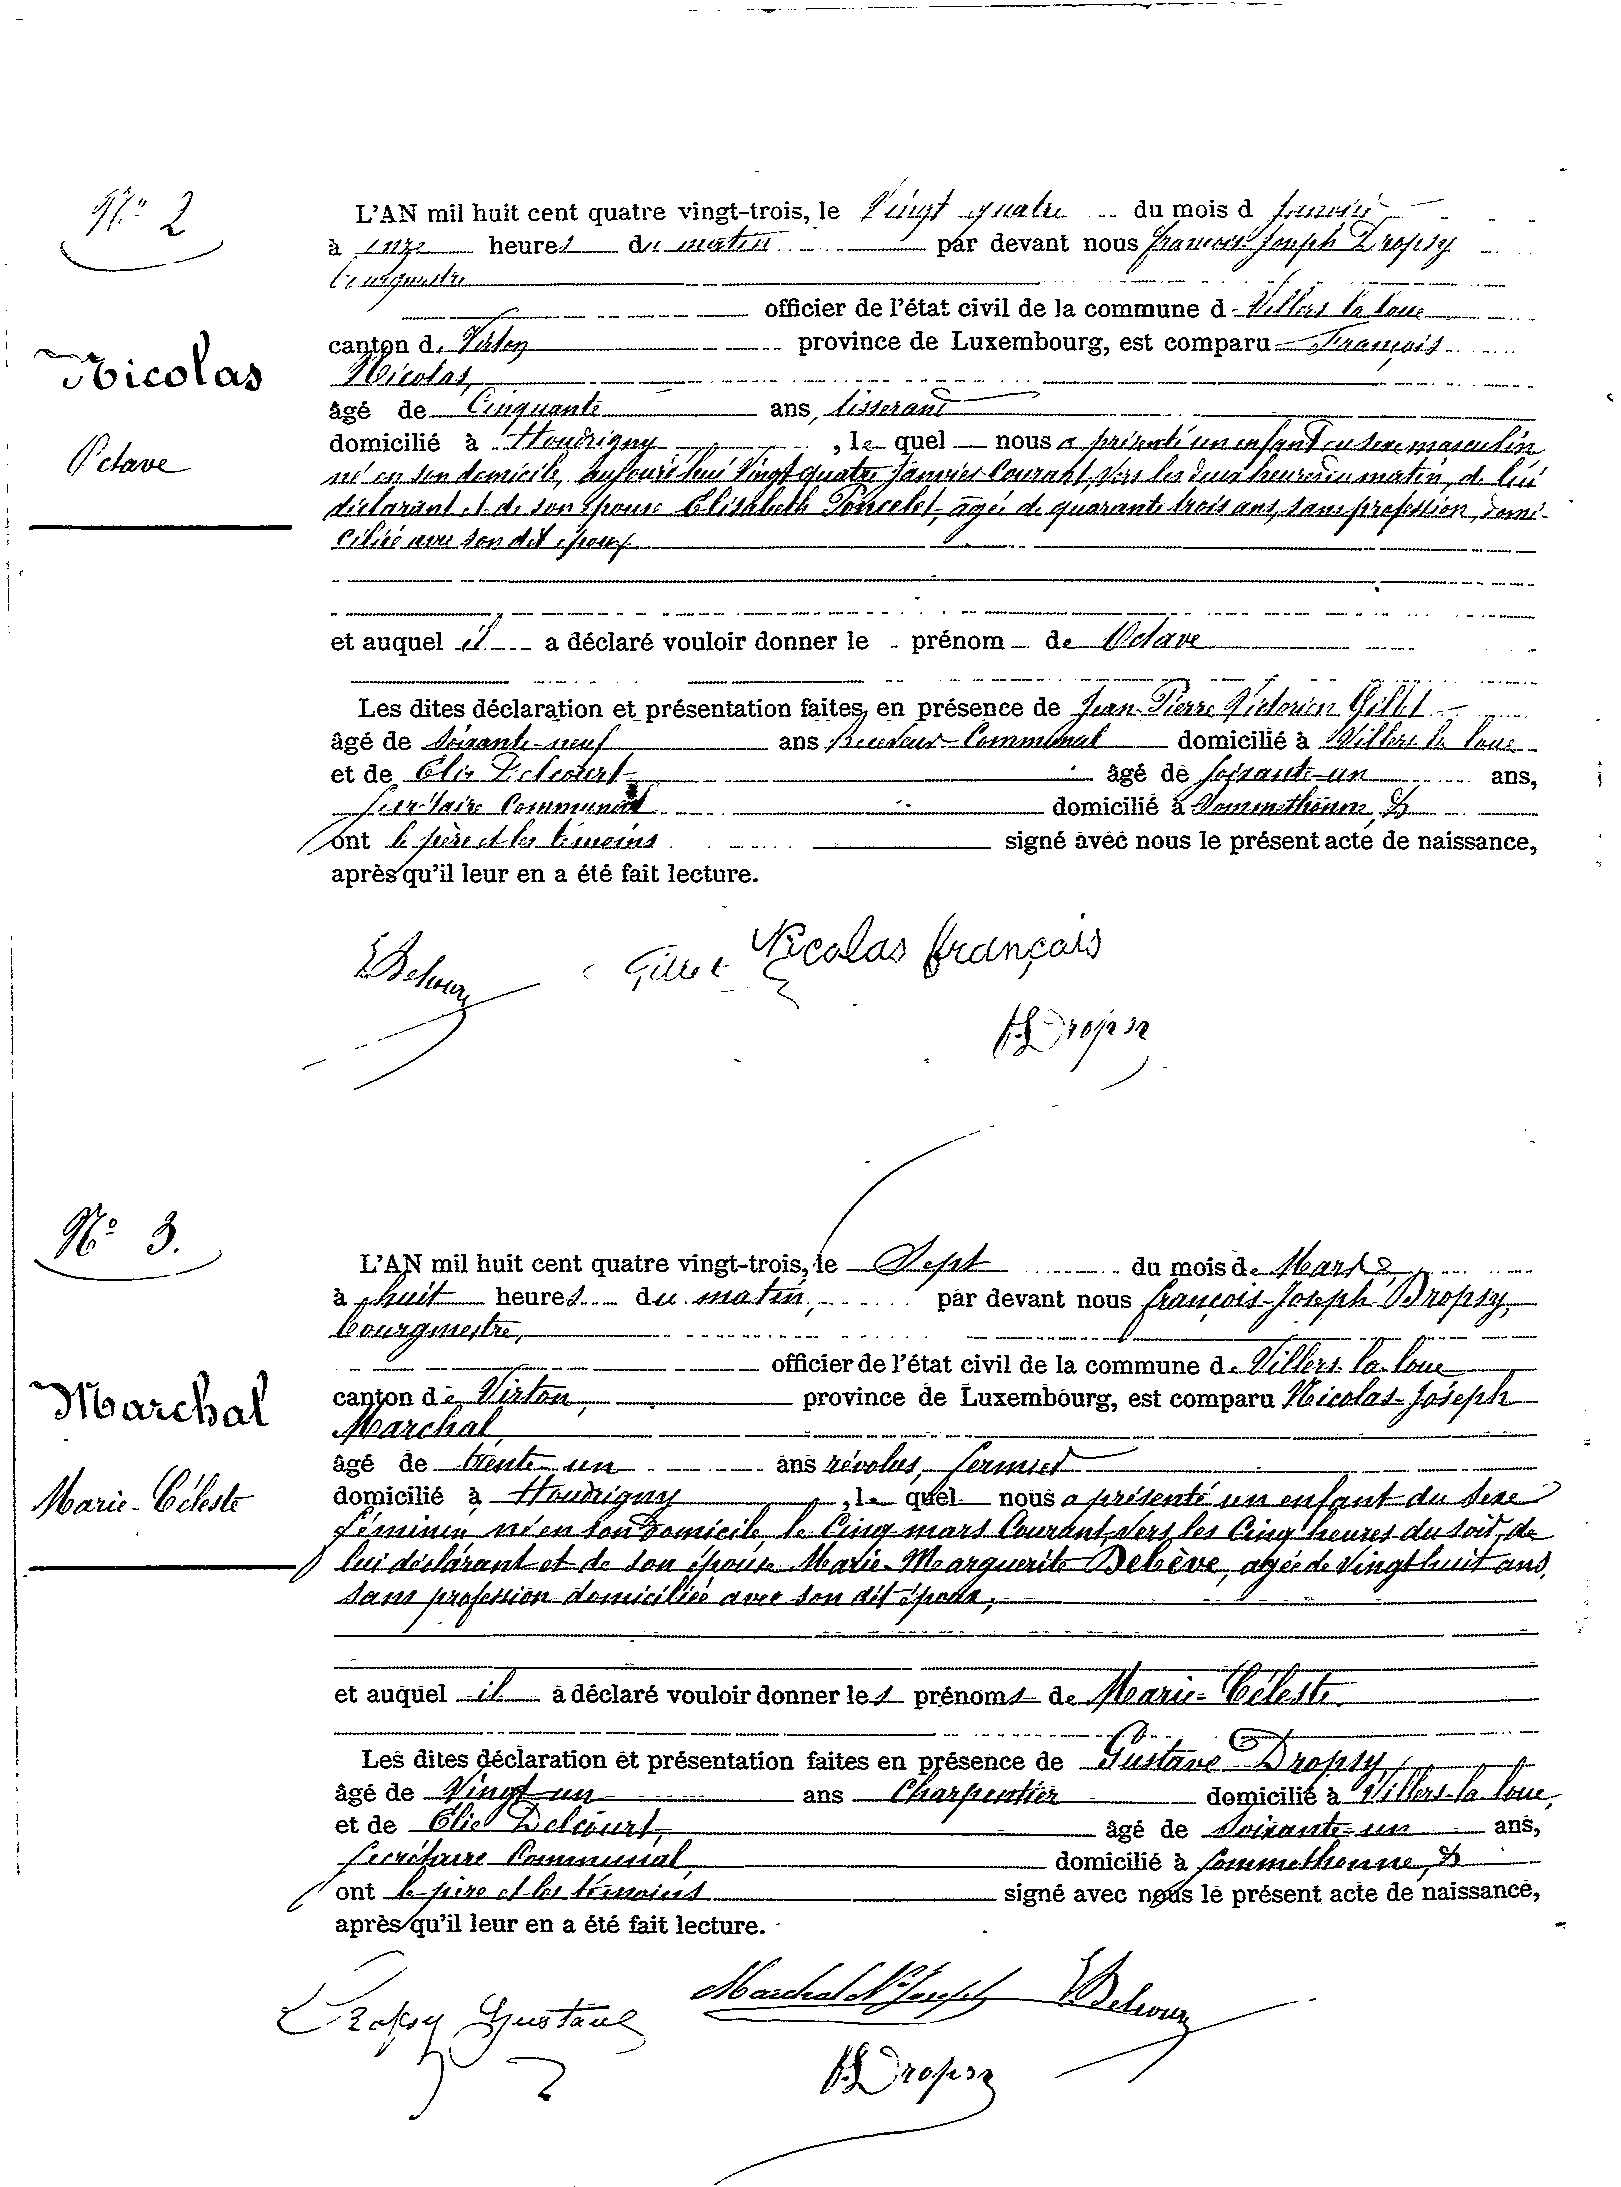 N° 2
Nicolas
Octave
L'AN mil huit cent quatre vingt-trois, le Vingt quatre du mois d Janvier
à onze heures du matin par devant nous François Joseph Dropsy
bourgmestre
officier de l'état civil de la commune de Villers la loue
canton de Virton province de Luxembourg, est comparu François
Nicolas,
âgé de Cinquante ans, tisserand
domicilié à Houdrigny, le quel nous a présenté un enfant du sexe masculin
né en son domicile, aujourd'hui Vingt quatre Janvier Courant, vers les deux heures du matin, de lui
déclarant et de son épouse Elisabeth Poncelet, agée de quarante trois ans, sans profession, domi-
ciliée avec son dit époux
et auquel il a déclaré vouloir donner le prénom de Octave
Les dites déclaration et présentation faites, en présence de Jean-Pierre Victorien Gillet
âgé de Soixante-neuf ans Receveur-Communal domicilié à Villers la loue
et de Elie Delcourt âgé de soixante-un ans,
secrétaire Communal domicilié à Sommethonne, &
ont le père et les témoins signé avec nous le présent acte de naissance,
après qu'il leur en a été fait lecture.
EDelcourt Gillet Nicolas françois
FJDropsy
N° 3.
Marchal
Marie-Céleste
L'AN mil huit cent quatre vingt-trois, le Sept du mois de Mars
à huit heures du matin, par devant nous françois-Joseph Dropsy,
bourgmestre,
officier de l'état civil de la commune de Villers-la-loue
canton de Virton, province de Luxembourg, est comparu Nicolas-Joseph
Marchal,
âgé de trente-un ans révolus, fermier
domicilié à Houdrigny, le quel nous a présenté un enfant du sexe
féminin né en son domicile, le Cinq mars Courant, vers les Cinq heures du soir, de
lui déclarant et de son épouse Marie-Marguerite Debève, agée de Vingt huit ans,
sans profession domiciliée avec son dit époux,
et auquel il a déclaré vouloir donner les prénoms de Marie-Céleste
Les dites déclaration et présentation faites en présence de Gustave Dropsy,
âgé de Vingt-un ans Charpentier domicilié à Villers-la-loue,
et de Elie Delcourt, âgé de Soixante-un ans,
secrétaire Communal, domicilié à Sommethonne, &
ont le père et les témoins signé avec nous le présent acte de naissance,
après qu'il leur en a été fait lecture.
Dropsy Gustave Marchal Nas Joseph EDelcourt
FJDropsy